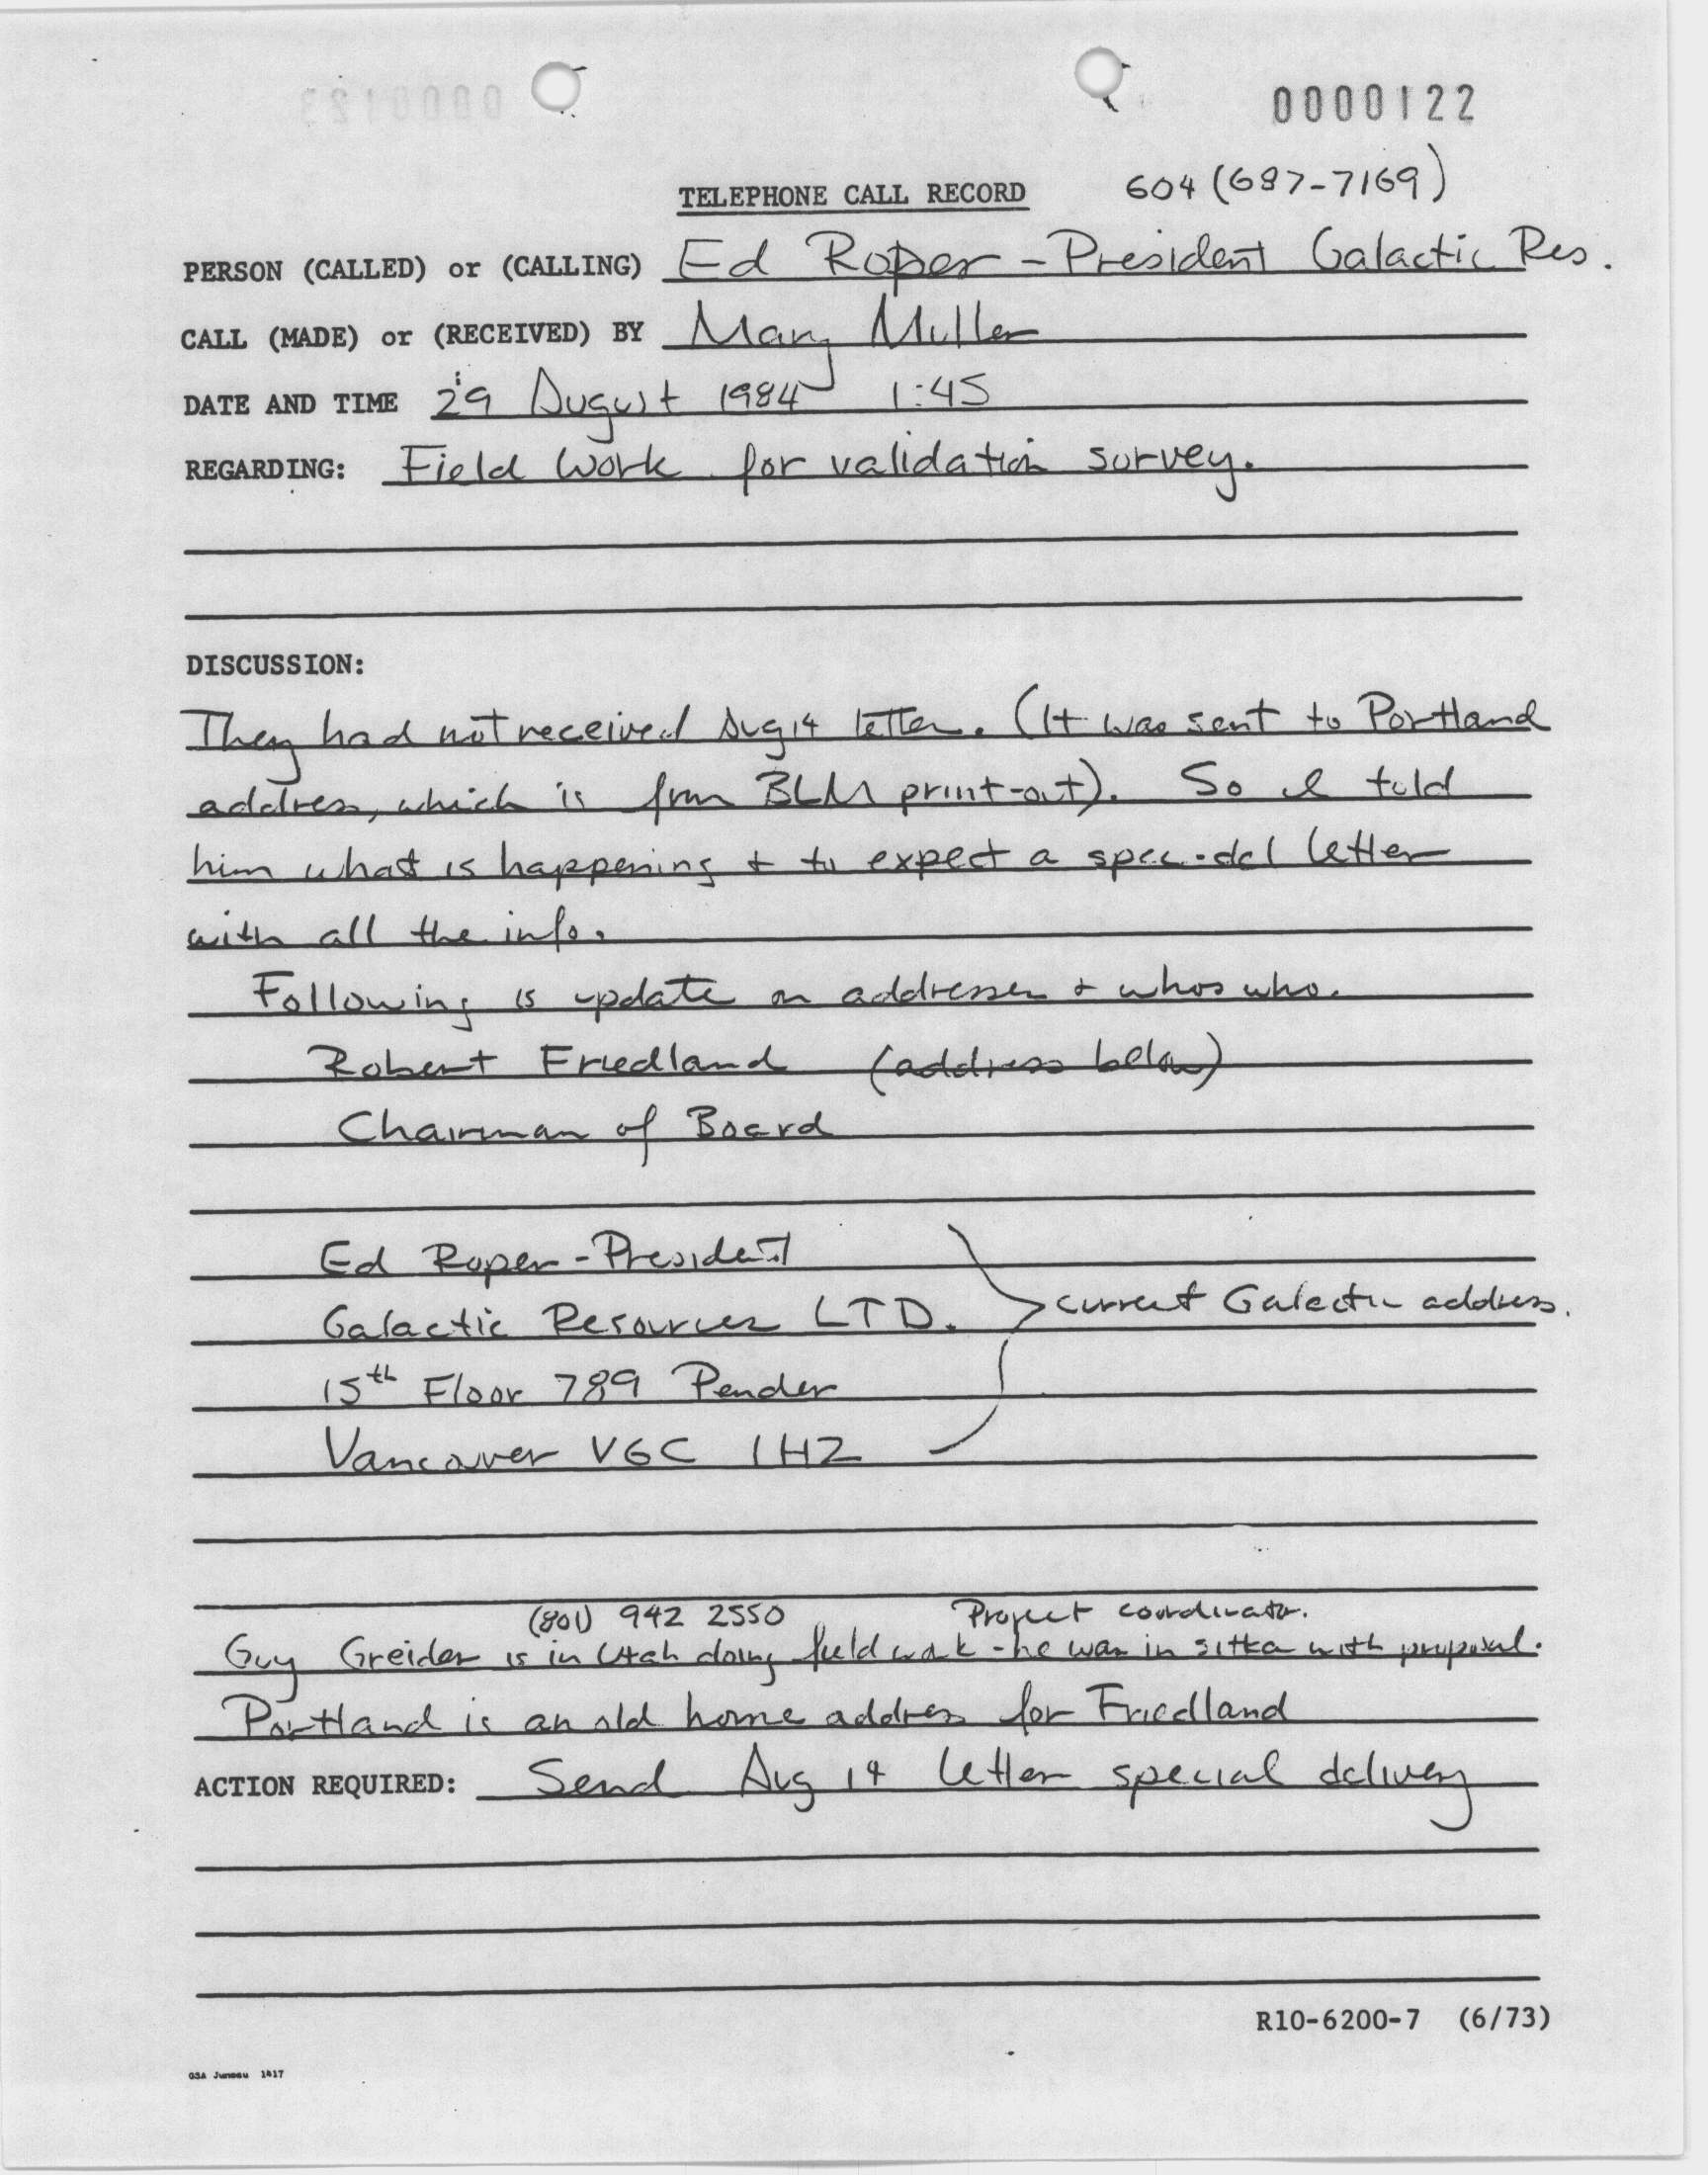 0000122
TELEPHONE CALL RECORD 604 (687-7169)
PERSON (CALLED) or (CALLING) Ed Roper - President Galactic Res.
CALL (MADE) or (RECEIVED) BY Mary Miller
DATE AND TIME 29 August 1984 1:45
REGARDING: Field Work for validation survey.
DISCUSSION:
They had not received Aug 14 letter. (It was sent to Portland
address, which is from BLM print-out). So I told
him what is happening + to expect a spec-del letter
with all the info.
Following is update on addresses + whos who.
Robert Friedland (address below)
Chairman of Board
Ed Roper - President
Galactic Resources LTD. current Galactic address.
15th Floor 789 Pender
Vancouver V6C 1H2
(801) 942 2550 Project coordinator.
Guy Greider is in Utah doing field work - he was in sitka with proposal.
Portland is an old home address for Friedland
ACTION REQUIRED: Send Aug 14 letter special delivery
R10-6200-7 (6/73)
GSA Juneau 1417